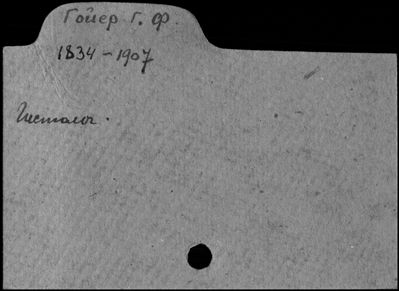 Гойер Г. Ф.
1834-1907
Гистолог.